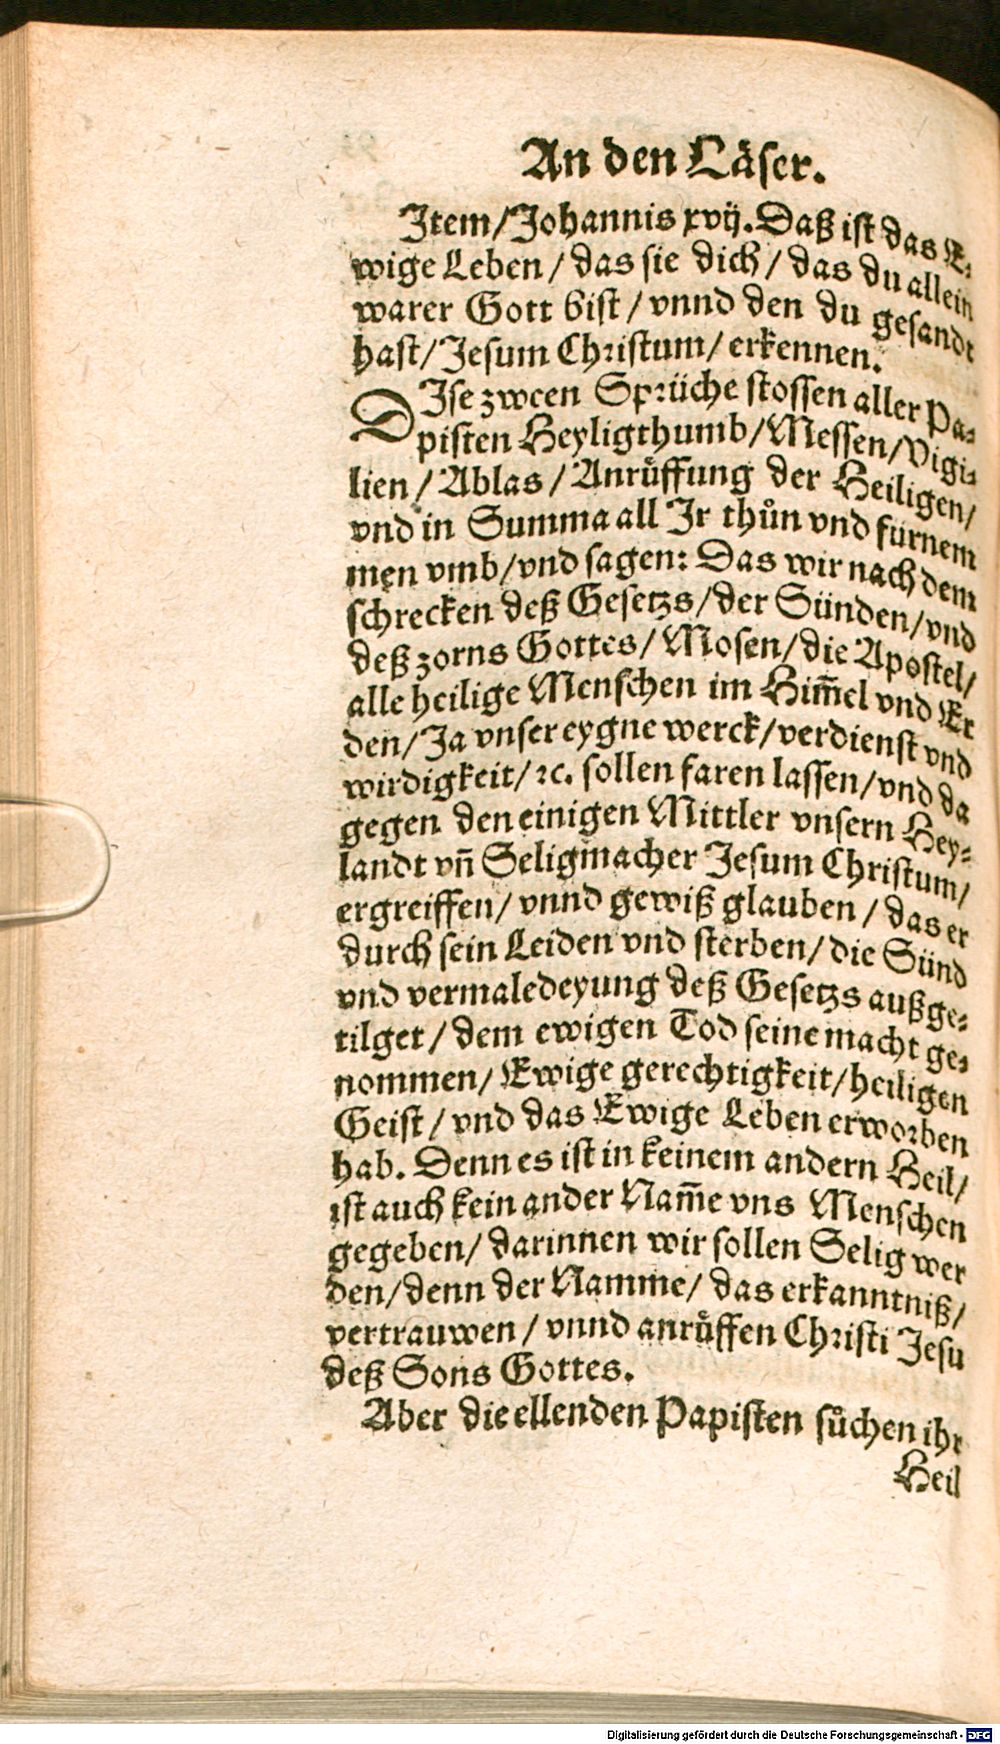 An den Läser.
Item/Johannis xvij. Daß ist das E⸗
wige Leben/ das sie dich/ das du allein
warer Gott bist/ vnnd den du gesandt
hast/ Jesum Christum/ erkennen.
DIse zween Sprüche stossen aller Pa⸗
pisten Heyligthumb/Messen/Vigi⸗
lien/Ablas/Anrůffung der Heiligen/
vnd in Summa all Jr thůn vnd fürnem
men vmb/vnd sagen: Das wir nach dem
schrecken deß Gesetzs/der Sünden/vnd
deß zorns Gottes/ Mosen/die Apostel/
alle heilige Menschen im Him̃el vnd Er
den/Ja vnser eygne werck/verdienst vnd
wirdigkeit/ꝛc. sollen faren lassen/vnd da
gegen den einigen Mittler vnsern Hey⸗
landt vñ Seligmacher Jesum Christum/
ergreiffen/ vnnd gewiß glauben/das er
durch sein Leiden vnd sterben/ die Sünd
vnd vermaledeyung deß Gesetzs außge⸗
tilget/ dem ewigen Tod seine macht ge⸗
nommen/ Ewige gerechtigkeit/heiligen
Geist/ vnd das Ewige Leben erworben
hab. Denn es ist in keinem andern Heil/
ist auch kein ander Nam̃e vns Menschen
gegeben/ darinnen wir sollen Selig wer
den/denn der Namme/ das erkanntniß/
vertrauwen/ vnnd anrůffen Christi Jesu
deß Sons Gottes.
Aber die ellenden Papisten sůchen ihr
Heil
Digitalisierung gefördert durch die Deutsche Forschungsgemeinschaft - DFG